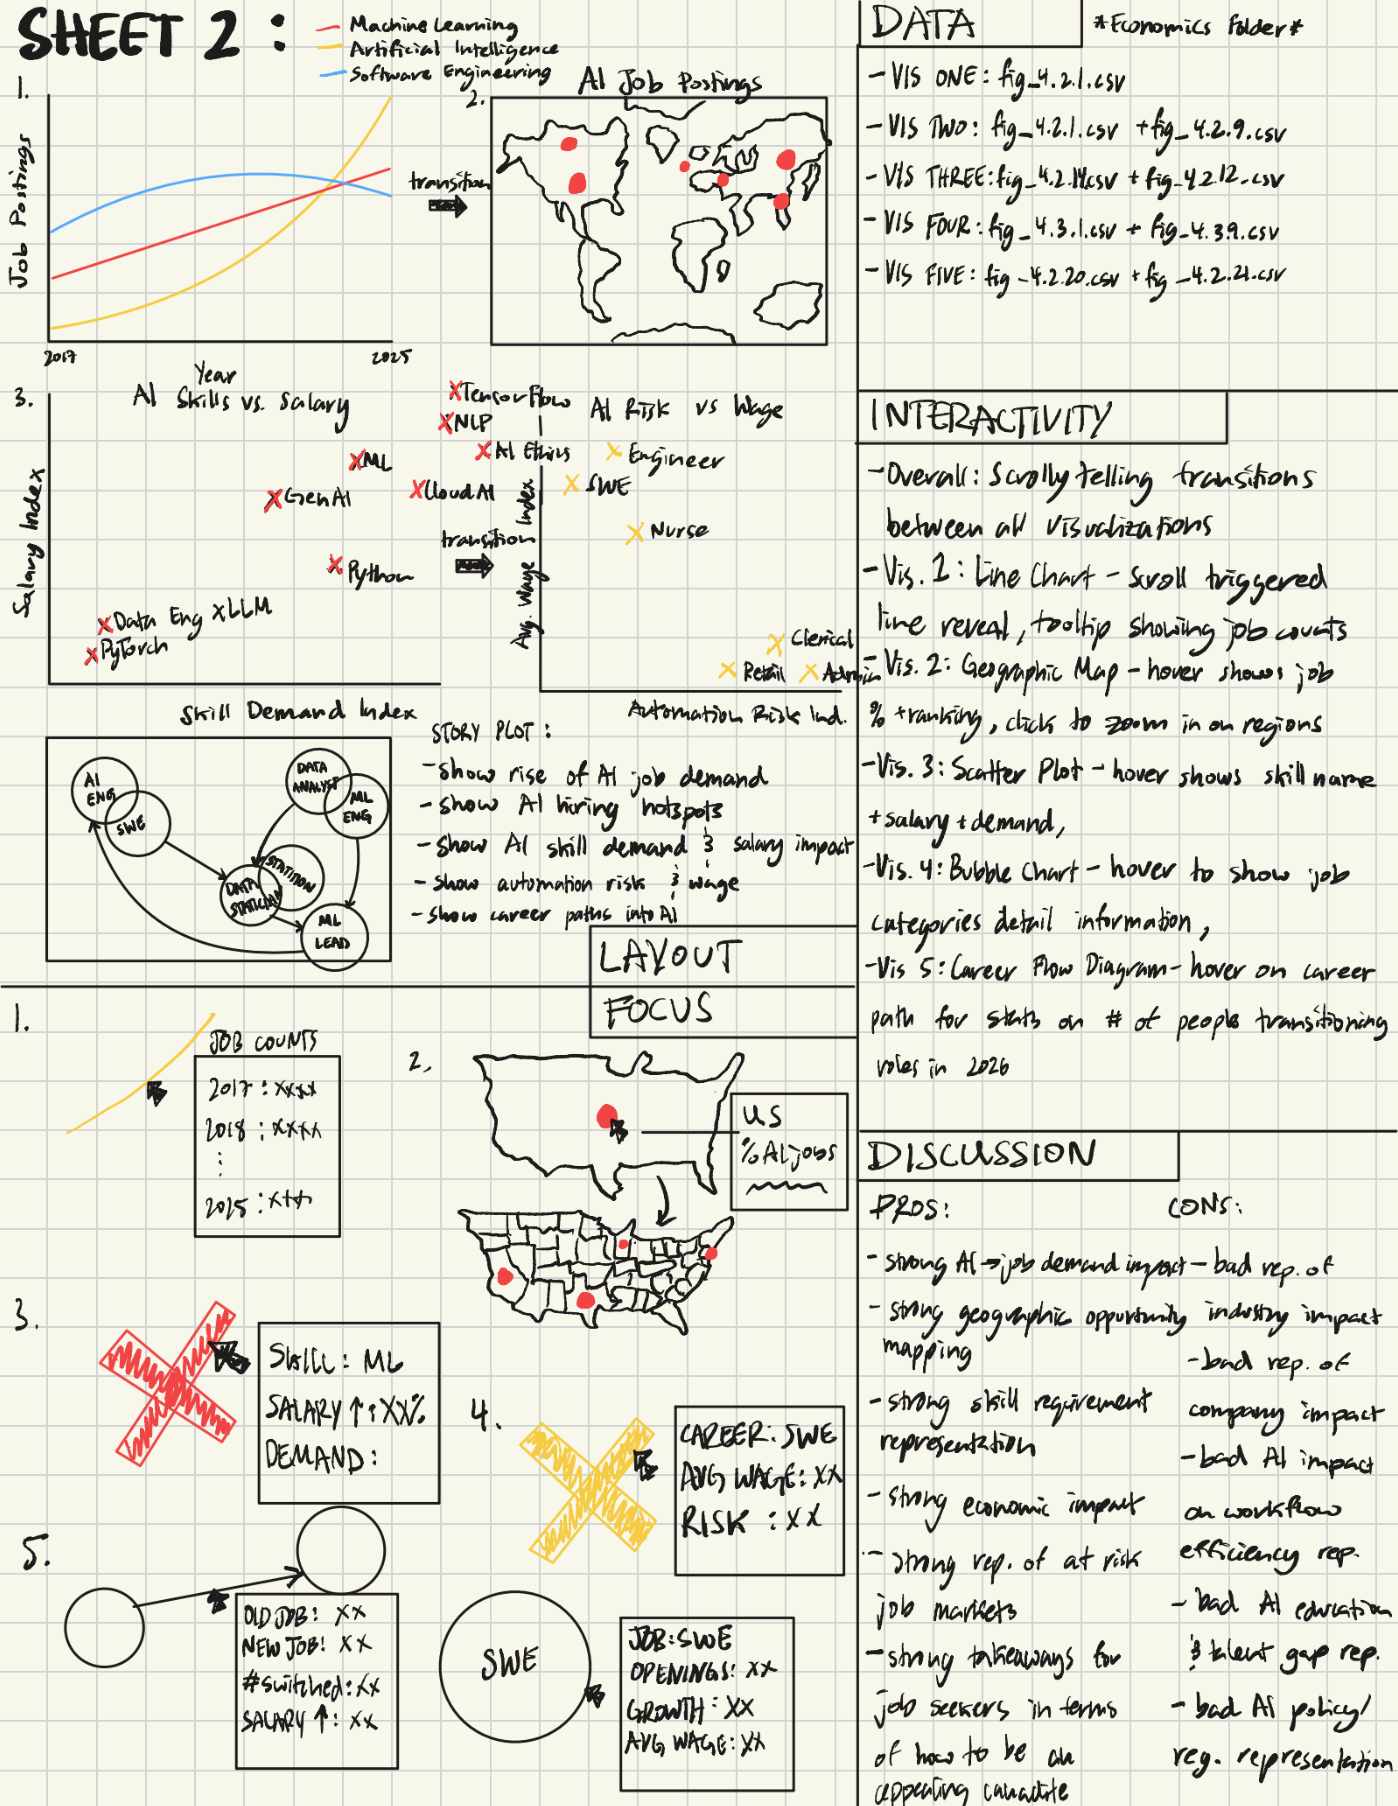 SHEET 2 :
Machine Learning
Artificial Intelligence
Software Engineering
1.
Job Postings
2017
2025
Year
transition
2.
AI Job Postings
3.
AI Skills vs. Salary
Salary Index
TensorFlow
NLP
AI Ethics
ML
GenAI
Cloud AI
Python
Data Eng
xLLM
PyTorch
Skill Demand Index
transition
AI Risk vs Wage
Avg. Wage Index
Engineer
SWE
Nurse
Clerical
Retail
Admin
Automation Risk Ind.
AI ENG
SWE
DATA ANALYST
ML ENG
ML LEAD
STORY PLOT :
- show rise of AI job demand
- show AI hiring hotspots
- show AI skill demand & salary impact
- show automation risk & wage
- show career paths into AI
LAYOUT
FOCUS
1.
JOB COUNTS
2017 : xxxx
2018 : xxxx
2025 :
2.
US
% AI jobs
3.
SKILL: ML
SALARY ↑: XX%
DEMAND:
4.
CAREER: SWE
AVG WAGE: XX
RISK : XX
5.
OLD JOB: XX
NEW JOB: XX
#switched: XX
SALARY ↑: XX
SWE
JOB: SWE
OPENINGS: XX
GROWTH: XX
AVG WAGE: XX
DATA
*Economics Folder*
- VIS ONE: fig_4.2.1.csv
- VIS TWO: fig_4.2.1.csv + fig_4.2.9.csv
- VIS THREE: fig_4.2.14.csv + fig_4.2.12.csv
- VIS FOUR: fig_4.3.1.csv + fig_4.3.9.csv
- VIS FIVE: fig_4.2.20.csv + fig_4.2.21.csv
INTERACTIVITY
- Overall: Scrollytelling transitions
between all visualizations
- Vis. 1: Line Chart - scroll triggered
line reveal, tooltip showing job counts
- Vis. 2: Geographic Map - hover shows job
% + ranking, click to zoom in on regions
- Vis. 3: Scatter Plot - hover shows skill name
+ salary + demand,
- Vis. 4: Bubble Chart - hover to show job
categories detail information,
- Vis 5: Career Flow Diagram - hover on career
path for stats on # of people transitioning
roles in 2026
DISCUSSION
PROS:
- strong AI → job demand impact
- strong geographic opportunity
mapping
- strong skill requirement
representation
- strong economic impact
- strong rep. of at risk
job markets
- strong takeaways for
job seekers in terms
of how to be an
appealing
CONS:
- bad rep. of
industry impact
- bad rep. of
company impact
- bad AI impact
on workflow
efficiency rep.
- bad AI education
& talent gap rep.
- bad AI policy/
reg. representation